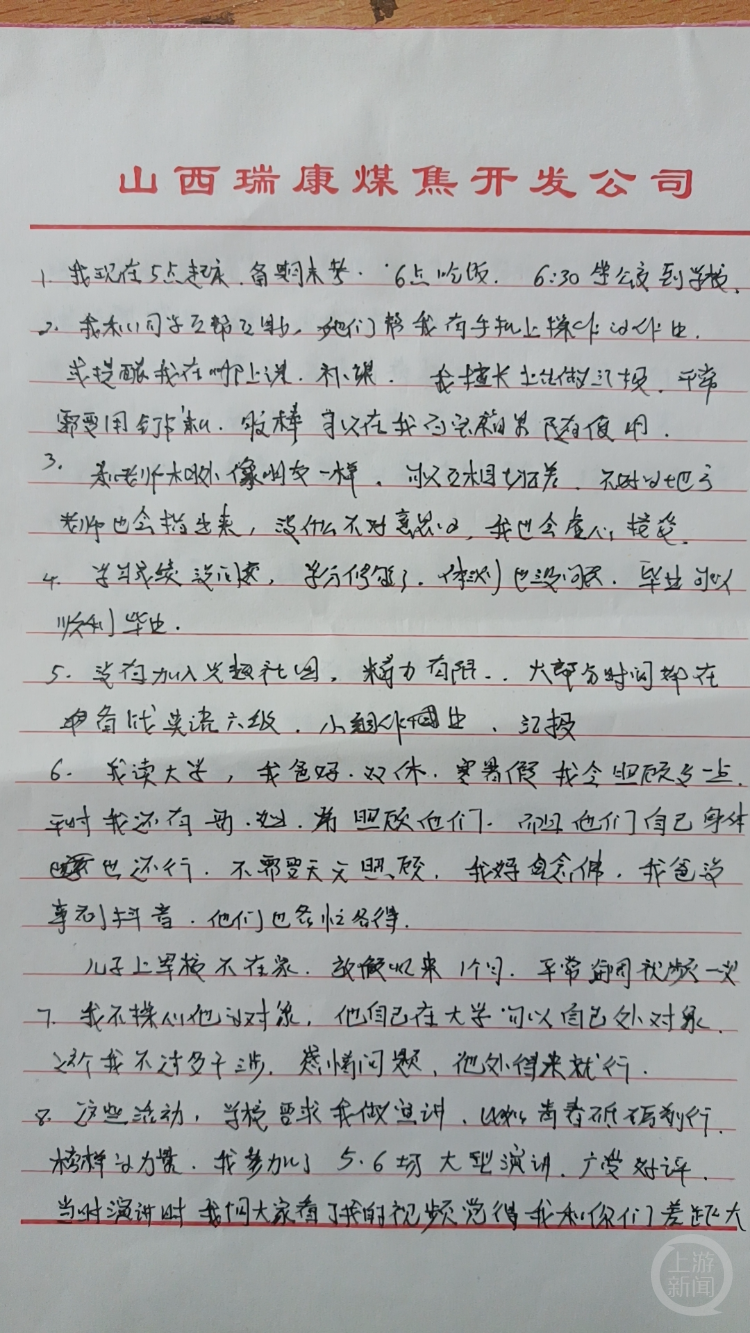 山西瑞康煤焦开发公司
1. 我现在5点起床.备期末考.6点吃饭. 6:30坐公交到学校.
2. 我和同学互帮互助,他们帮我在手机上操作的作业.
或提醒我在哪上课.补课. 我擅长上台做汇报.平常
需要用
3. 和老师相处像朋友一样.可以互相 不对的地方
老师也会指出来,没什么不对意思的,我也会虚心接受.
4. 学习成绩没问题,学分修够了.体测也没问题.毕业可以
顺利毕业.
5. 没有加入兴趣社团,精力有限..大部分时间都在
备战英语六级.小组作业、汇报
6. 我读大学,我爸妈.双休.寒暑假我会照顾多一点.
平时我还有 照顾他们.而且他们自己身体
也还行.不需要天天照顾.我妈念佛.我爸没
事刷抖音.他们也各忙各得.
儿子上军校不在家.放假回来1个月.平常用视频一次
7. 我不操心他的对象,他自己在大学可以自己处对象.
这个我不过多干涉.感情问题,他处得来就行.
8. 这些活动,学校要求我做演讲.以 青春砥砺前行.
榜样的力量.我参加了5.6场大型演讲.广受好评.
当时演讲时我问大家看了我的视频觉得我和你们差距大
上游新闻